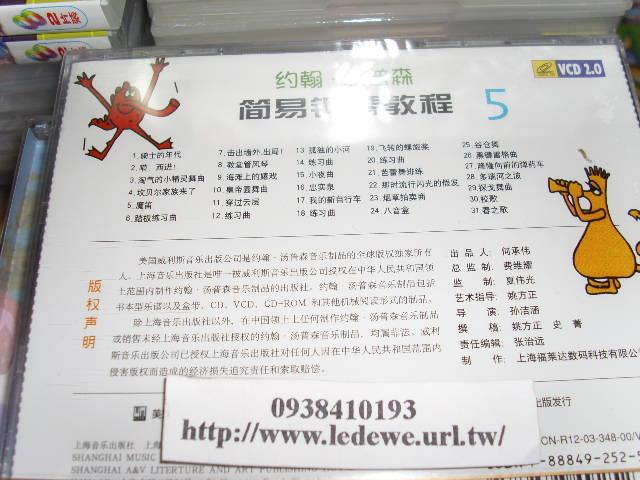 2片装
2片装
VCD 2.0
约翰 森
简易 教程 5
1.骑士的年代
西进!
3.淘气的小精灵舞曲
4.坎贝尔家族来了
5.魔笛
6.踏板练习曲
7.击出墙外,出局!
8.教堂管风琴
9.海滩上的嬉戏
10.皇帝圆舞曲
11.穿过云层
12.练习曲
13 孤独的小河
14 练习曲
15 小夜曲
16 忠实泉
17 我的新自行车
18 练习曲
19.飞转的螺旋桨
20.练习曲
21.芭蕾舞排练
22.那时流行闪光的
23.烟草拍卖商
24.八音盒
25.谷仓舞
26.
27.隆隆向前的弹药车
28.多瑙河之波
29.探戈舞曲
30.
31.春之歌
版权声明
美国威利斯音乐出版公司是约翰·汤普森音乐制品的全球版权独家所有
人。上海音乐出版社是唯一被威利斯音乐出版公司授权在中华人民共和国领
土范围内制作约翰·汤普森音乐制品的出版社。约翰·汤普森音乐制品包括
书本型乐谱以及盒带、CD、VCD、CD-ROM 和其他机械阅读形式的制品。
除上海音乐出版社以外,在中国领土上任何制作约翰·汤普森音乐制品
或销售未经上海音乐出版社授权的约翰·汤普森音乐制品,均属非法。威利
斯音乐出版公司已授权上海音乐出版社对任何人因在中华人民共和国范围内
侵害版权而造成的经济损失追究责任和索取赔偿。
出品人: 何承伟
总监制: 费维耀
监制: 夏伟光
艺术指导: 姚方正
导演: 孙洁涵
撰稿: 姚方正 史菁
责任编辑: 张治远
制作: 上海福莱达数码科技有限公
美
出版发行
0938410193
http://www.ledewe.url.tw/
上海音乐出版社 上海
SHANGHAI MUSIC
SHANGHAI A&V LITERTURE AND ART PUBLISHING
CN-R12-03-348-00/V
88849-252-5